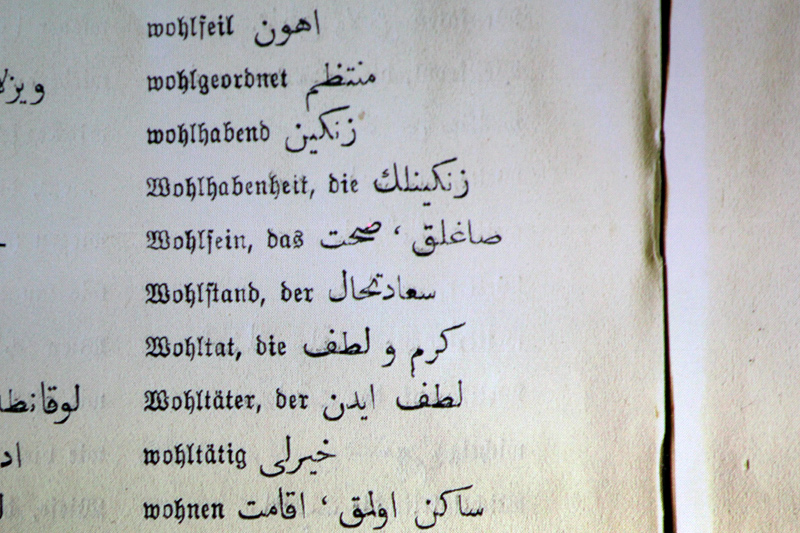 wohlfeil اهون
wohlgeordnet منتظم
wohlhabend زنكين
Wohlhabenheit, die زنكينلك
Wohlsein, das صاغلق ، صحت
Wohlstand, der سعادتحال
Wohltat, die كرم و لطف
Wohltäter, der لطف ايدن
wohltätig خيرلى
wohnen ساكن اولمق ، اقامت